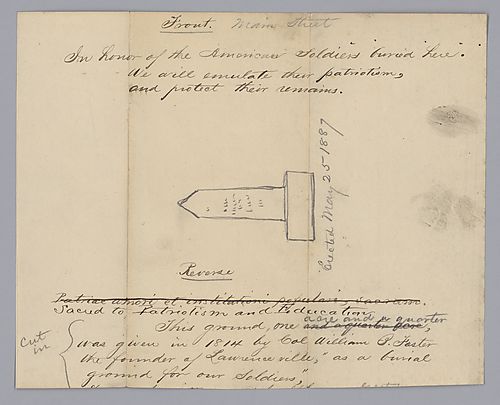 Front. Main Street
In honor of the American Soldiers buried here.
We will emulate their patriotism,
and protect their remains.
Erected May 25-1887
Reverse
Patriae amori et institutioni populari, Sacrum.
Sacred to Patriotism and Education
acre and a quarter
This ground, one and a quarter acre,
Cut in
was given in 1814 by Col William B. Foster
the founder of Lawrenceville, "as a burial
ground for our Soldiers,"